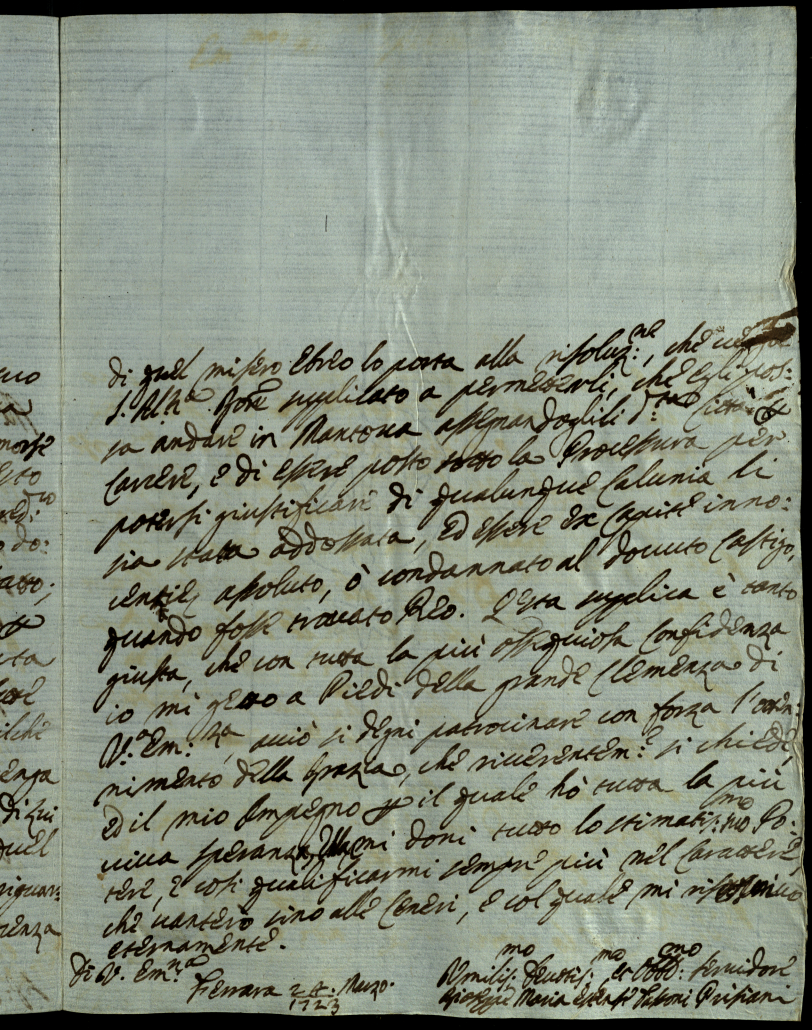 di quel misero Ebreo lo porta alla risoluz:ne, che
S. Alt:a supplicato a permetterli, che Egli pos:
sa andare in Mantova assegnandoglili d:tta Città
Carcere, e di essere posto sotto la Processura per
potersi giustificare di qualunque Calunia li
sia stata addossata, ed essere ex Capite inno:
assoluto, ò condannato al dovuto Castigo,
quando fosse trovato Reo. Questa supplica è tanto
giusta, che con tutta la più ossequiosa Confidenza
io mi getto a Piedi della grande Clemenza di
V.a Em:za, acciò si degni patrocinare con forza l'otten:
nimento della Grazia, che riverentem:e si chiede,
ed il mio Impegno p il quale hò tutta la più
viva speranza mi doni tutto lo stimatiss:mo Po:
tere, e così qualificarmi sempre più nel Carattere,
che vanterò sino alle Ceneri, e col quale mi
eternamente.
Di V. Em:za
Ferrara 24: Marzo 1723
Umilis:mo Devotis:mo et Obb:mo Servidore
Giuseppe Maria Estense Tassoni Prisiani